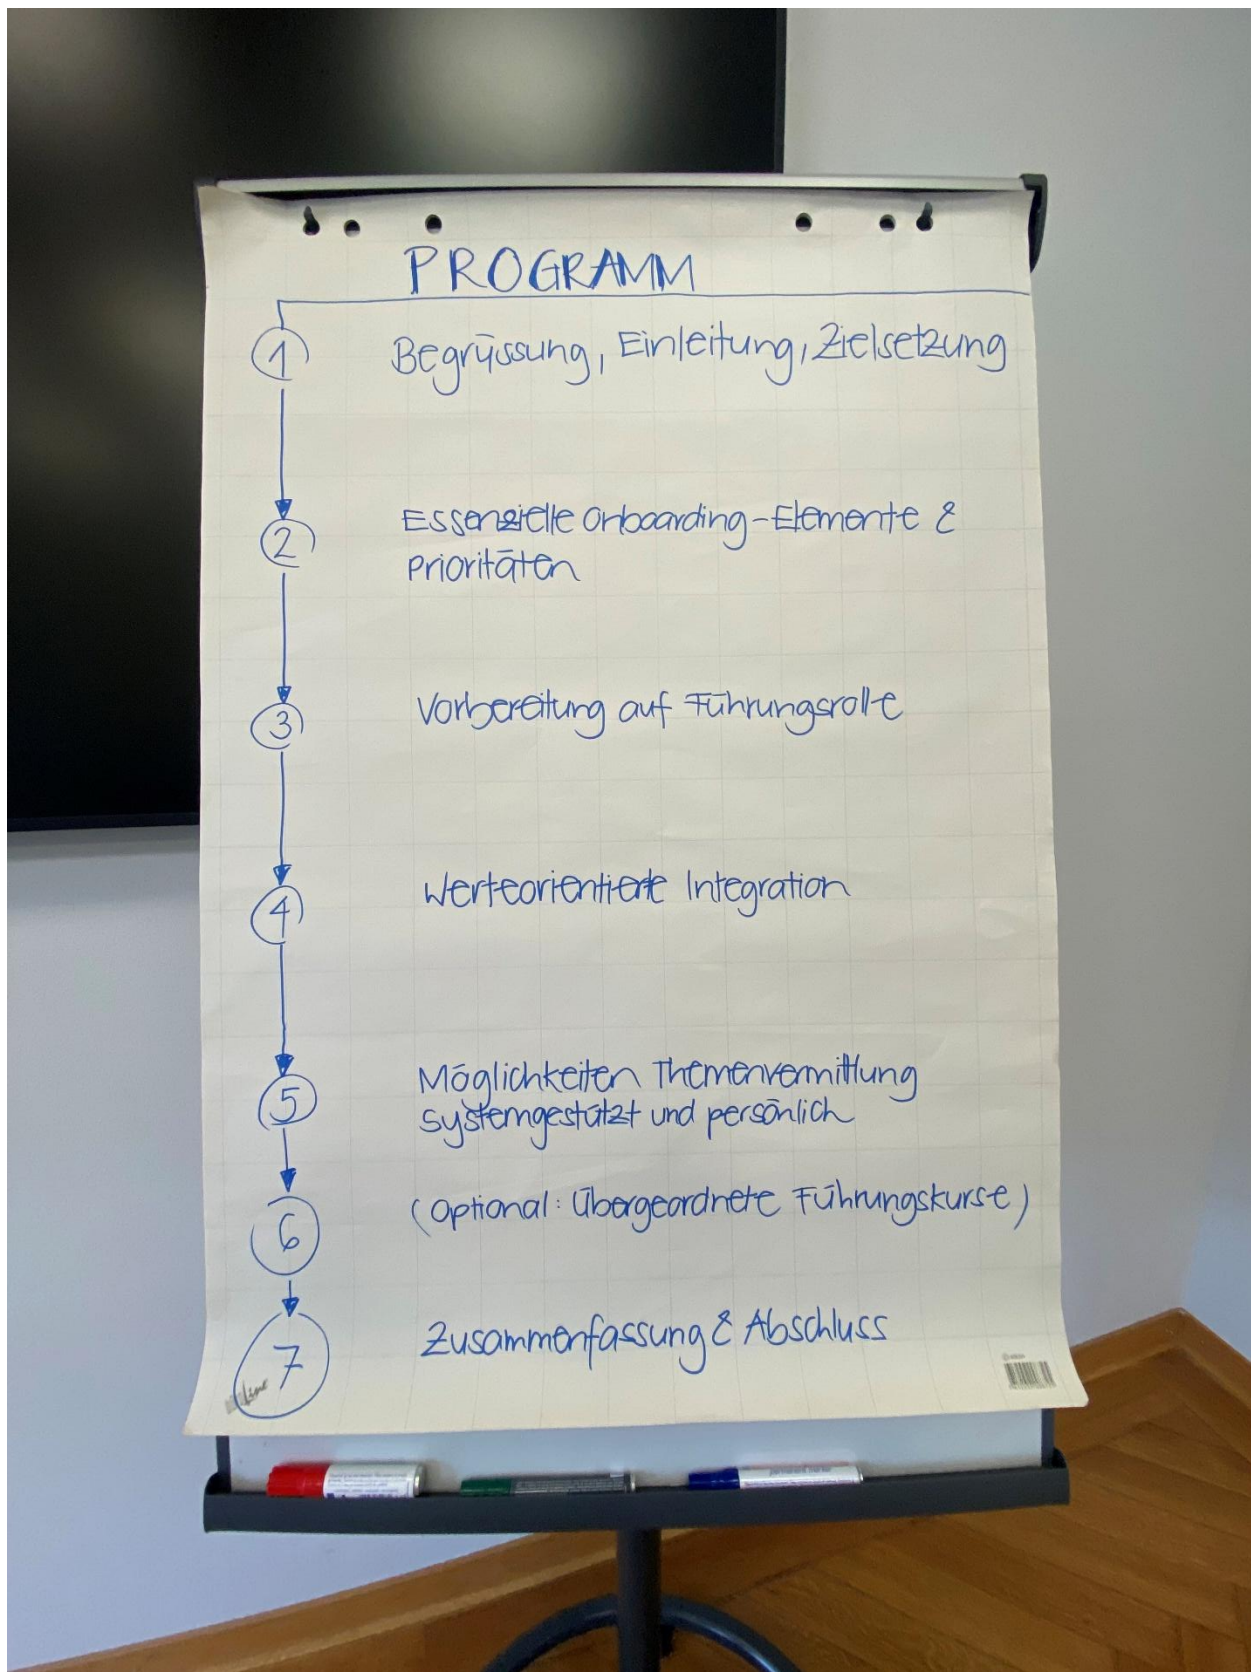 PROGRAMM
1 Begrüssung, Einleitung, Zielsetzung
2 Essenzielle Onboarding-Elemente &
Prioritäten
3 Vorbereitung auf Führungsrolle
4 Werteorientierte Integration
5 Möglichkeiten Themenvermittlung
systemgestützt und persönlich
6 (Optional: Übergeordnete Führungskurse)
7 Zusammenfassung & Abschluss